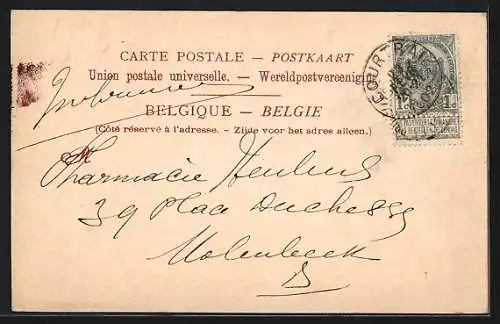 CARTE POSTALE — POSTKAART
Union postale universelle. — Wereldpostvereeniging
BELGIQUE — BELGIE
(Côté réservé à l'adresse. — Zijde voor het adres alleen.)
Pharmacie
39 Place Duchesse
Molenbeek
COURTRAI